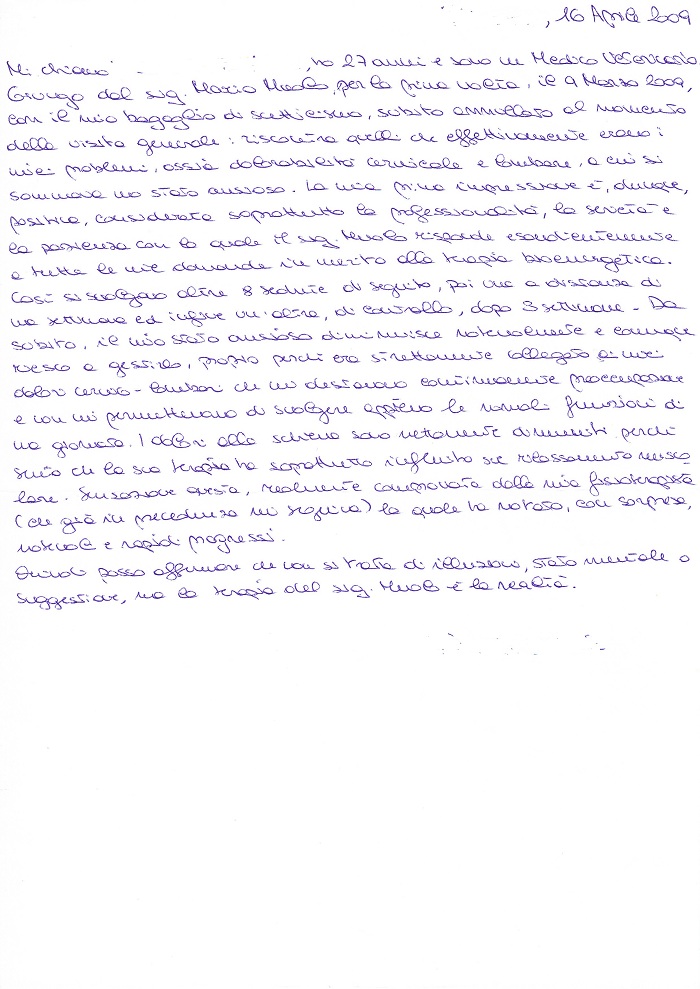 , 16 Aprile 2009
Mi chiamo , ho 27 anni e sono un Medico Veterinario.
Giungo dal sig. Mario, per la prima volta, il 9 Marzo 2009,
con il mio bagaglio di scetticismo, subito annullato al momento
della visita generale: riscontra quelli che effettivamente erano i
miei problemi, ossia dolorabilità cervicale e lombare, a cui si
sommava uno stato ansioso. La mia prima impressione è, dunque,
positiva, considerata soprattutto la professionalità, la serietà e
la pazienza con la quale il sig. risponde esaurientemente
a tutte le mie domande in merito alla terapia bioenergetica.
Così si svolgono altre 8 sedute di seguito, poi una a distanza di
una settimana ed infine un'altra, di controllo, dopo 3 settimane - Da
subito, il mio stato ansioso diminuisce notevolmente e comunque
riesco a gestirlo, proprio perché era strettamente collegato ai miei
dolori cervico-lombari che mi destavano continuamente preoccupazione
e non mi permettevano di svolgere appieno le normali funzioni di
una giornata. I dolori alla schiena sono nettamente diminuiti perché
sento che la sua terapia ha soprattutto influito sul rilassamento musco
lare. Sensazione questa, realmente comprovata dalla mia fisioterapista
(che già in precedenza mi seguiva) la quale ha notato, con sorpresa,
notevoli e rapidi progressi.
Quindi posso affermare che non si tratta di illusioni, stato mentale o
suggestione, ma la terapia del sig. è la realtà.